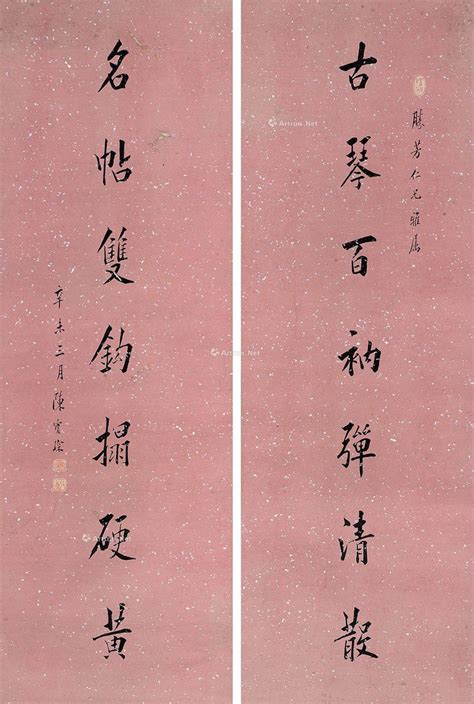 勝芳仁兄雅屬
古琴百衲彈清散
名帖雙鈎搨硬黃
辛未三月陳寶琛
Artron.Net
Artron.Net
Artron.Net